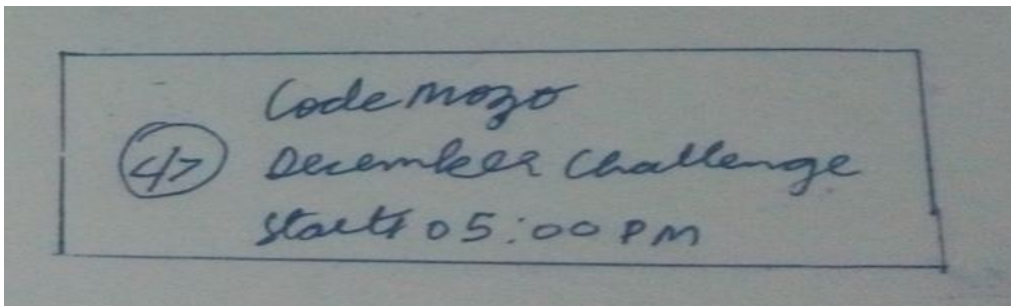 Codemozo
</> December Challenge
Starts 05:00 PM